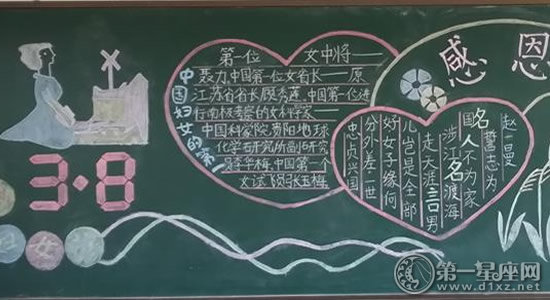 3·8
女
中国妇女的第
第一位 女中将——
聂力.中国第一位女省长——原
江苏省省长顾秀莲.中国第一位进
行南极考察的女科学家——
中国科学院贵阳地球
化学研究所副研究
员李华梅.中国第一个
女试飞员张玉梅
感恩
名人名言
赵一曼
誓志为
国不为家
涉江渡海
走天涯男
儿岂是全部
好女子缘何
分外差一世
忠贞兴国
第一星座网
www.d1xz.net